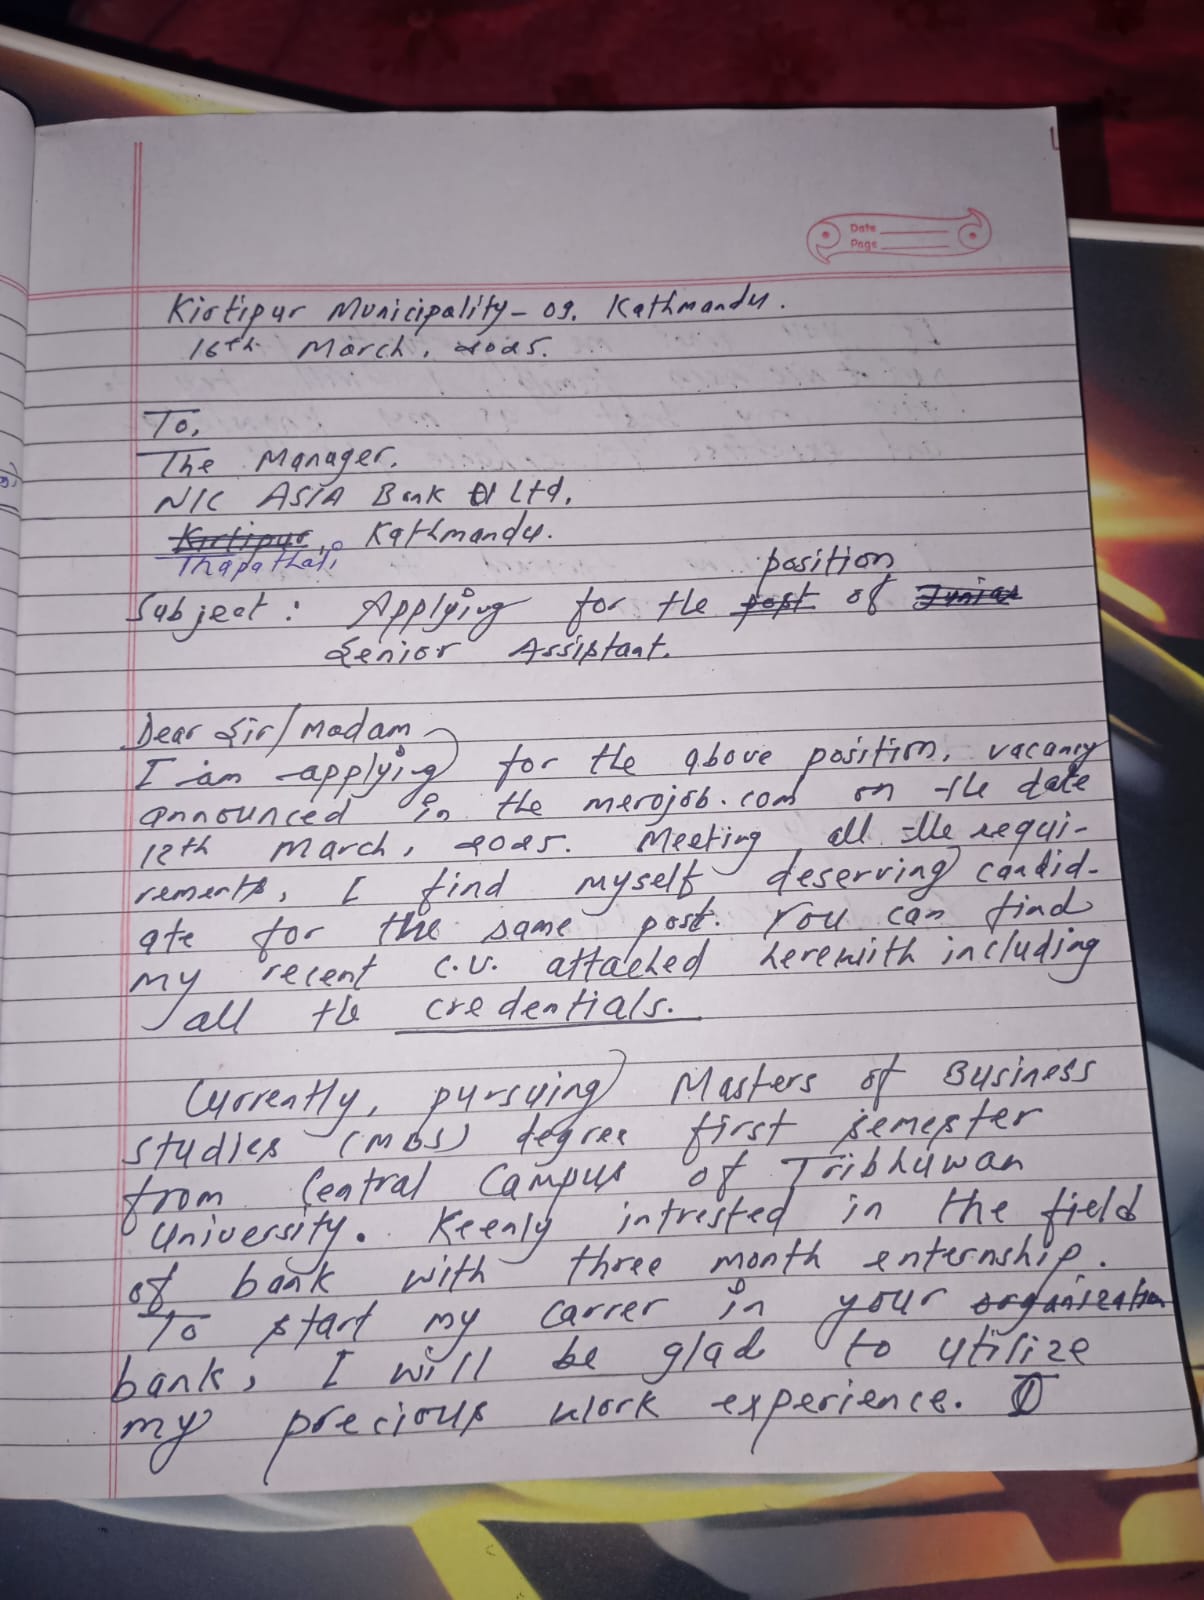 Date
Page
Kirtipur Municipality - 09, Kathmandu.
16th March, 2025.
To,
The Manager,
NIC ASIA Bank Ltd,
Kirtipur, Kathmandu.
Thapathali
position
Subject: Applying for the post of Junior
Senior Assistant.
Dear Sir/Madam
I am applying for the above position, vacancy
announced in the merojob.com on the date
12th March, 2025. Meeting all the requi-
rements, I find myself deserving candid-
ate for the same post. You can find
my recent C.V. attached herewith including
all the credentials.
Currently, pursuing Masters of Business
Studies (MBS) degree first semester
from Central Campus of Tribhuwan
University. Keenly intrested in the field
of bank with three month enternship.
To start my carrer in your organization
bank, I will be glad to utilize
my precious work experience.